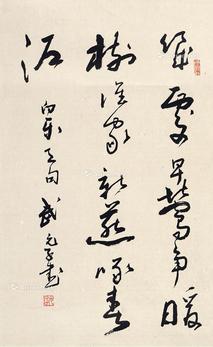 几处早莺争暖
树谁家新燕啄春
泥
白乐天句 武元子书